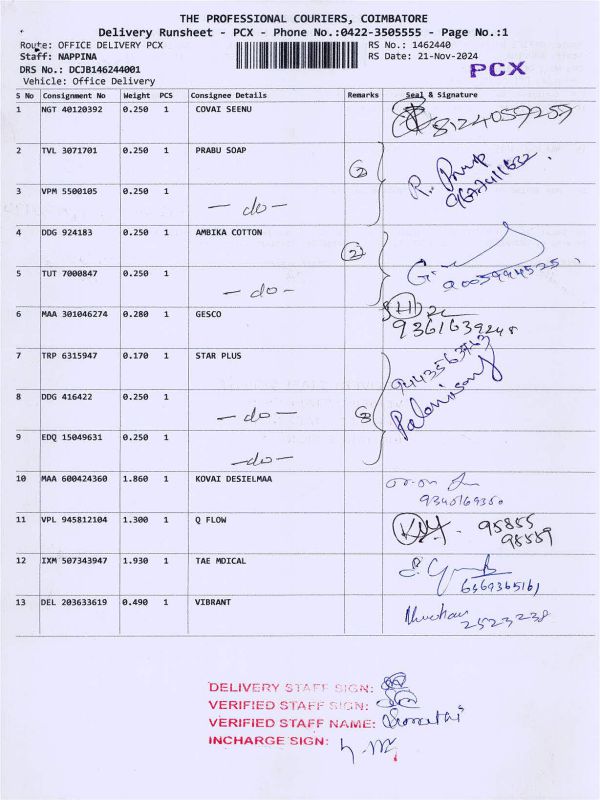 THE PROFESSIONAL COURIERS, COIMBATORE
Delivery Runsheet - PCX - Phone No.:0422-3505555 - Page No.:1
Route: OFFICE DELIVERY PCX RS No.: 1462440
Staff: NAPPINA RS Date: 21-Nov-2024
DRS No.: DCJB146244001 PCX
Vehicle: Office Delivery
S No Consignment No Weight PCS Consignee Details Remarks Seal & Signature
1 NGT 40120392 0.250 1 COVAI SEENU 8124059259
2 TVL 3071701 0.250 1 PRABU SOAP
3 VPM 5500105 0.250 1 - do - 2
4 DDG 924183 0.250 1 AMBIKA COTTON
5 TUT 7000847 0.250 1 - do - 2
6 MAA 301046274 0.280 1 GESCO 9361639248
7 TRP 6315947 0.170 1 STAR PLUS 9443563963
8 DDG 416422 0.250 1 - do - 3 Palanisamy
9 EDQ 15049631 0.250 1 - do -
10 MAA 600424360 1.860 1 KOVAI DESIELMAA 9345169350
11 VPL 945812104 1.300 1 Q FLOW 95855
98559
12 IXM 507343947 1.930 1 TAE MDICAL 6369365161
13 DEL 203633619 0.490 1 VIBRANT 2523238
DELIVERY STAFF SIGN:
VERIFIED STAFF SIGN:
VERIFIED STAFF NAME:
INCHARGE SIGN: